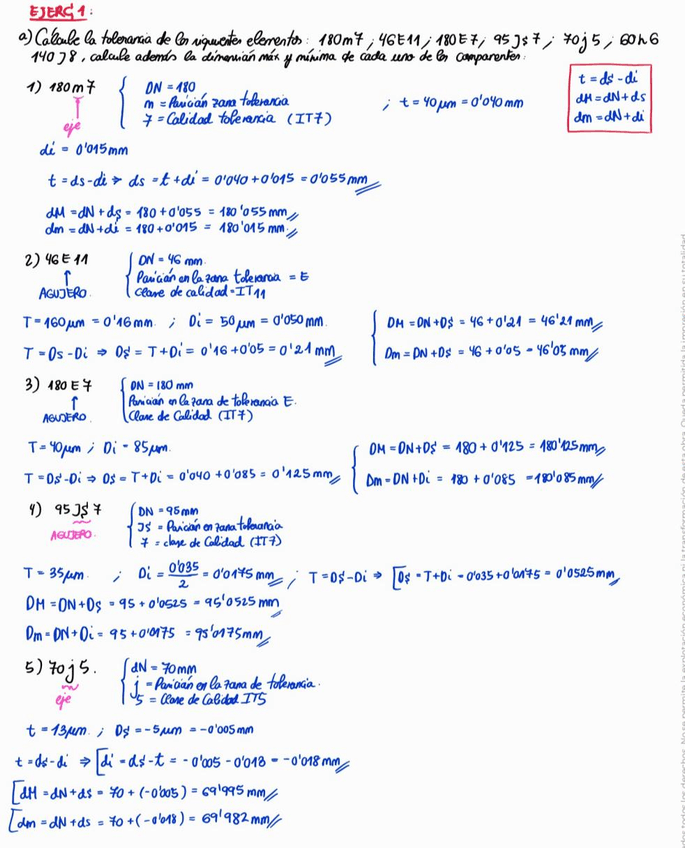 EJERC 1:
a) Calcule la tolerancia de los siguientes elementos: 180m7 ; 46E11 ; 180E7 ; 95Js7 ; 70j5 ; 60h6
140J8, calcule además la dimensión máx y mínima de cada uno de los componentes:
t = ds - di
dM = dN + ds
dm = dN + di
1) 180m7
eje
DN = 180
m = Posición zona tolerancia
7 = Calidad tolerancia (IT7)
; t = 40µm = 0'040mm
di = 0'015mm
t = ds - di ⇒ ds = t + di = 0'040 + 0'015 = 0'055mm
dM = dN + ds = 180 + 0'055 = 180'055mm
dm = dN + di = 180 + 0'015 = 180'015mm
2) 46E11
AGUJERO
DN = 46 mm
Posición en la zona tolerancia = E
Clase de calidad = IT11
T = 160µm = 0'16mm ; Di = 50µm = 0'050mm
T = Ds - Di ⇒ Ds = T + Di = 0'16 + 0'05 = 0'21mm
DM = DN + Ds = 46 + 0'21 = 46'21mm
Dm = DN + Ds = 46 + 0'05 = 46'05mm
3) 180E7
AGUJERO
DN = 180 mm
Posición en la zona de tolerancia E.
Clase de Calidad (IT7)
T = 40µm ; Di = 85µm
T = Ds - Di ⇒ Ds = T + Di = 0'040 + 0'085 = 0'125mm
DM = DN + Ds = 180 + 0'125 = 180'125mm
Dm = DN + Di = 180 + 0'085 = 180'085mm
4) 95Js7
AGUJERO
DN = 95mm
Js = Posición en zona tolerancia
7 = clase de Calidad (IT7)
T = 35µm ; Di = 0'035/2 = 0'0175mm ; T = Ds - Di ⇒ [Ds = T + Di = 0'035 + 0'0175 = 0'0525mm
DM = DN + Ds = 95 + 0'0525 = 95'0525mm
Dm = DN + Di = 95 + 0'0175 = 95'0175mm
5) 70j5.
eje
dN = 70mm
j = Posición en la zona de tolerancia.
5 = Clase de Calidad IT5
t = 13µm ; Ds = -5µm = -0'005mm
t = ds - di ⇒ [di = ds - t = -0'005 - 0'013 = -0'018mm
[dM = dN + ds = 70 + (-0'005) = 69'995mm
[dm = dN + ds = 70 + (-0'018) = 69'982mm
No se permite la explotación económica ni la transformación de esta obra. Queda permitida la impresión en su totalidad.